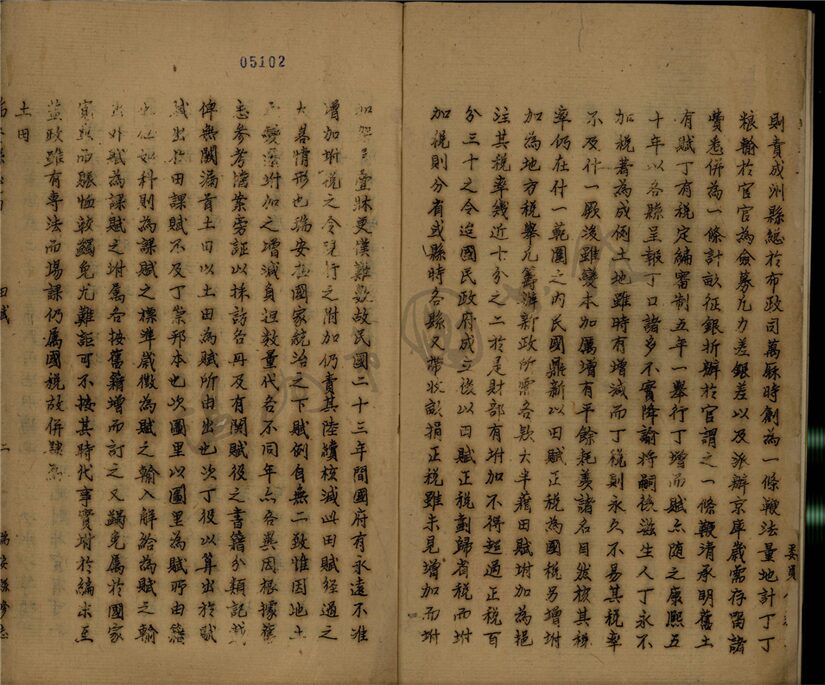 委員
則責成州縣總於布政司萬厤時創為一條鞭法量地計丁丁
粮輸於官官為僉募凡力差銀差以及派辦京庫歲需存留諸
費悉併為一條計畝征銀折辦於官謂之一條鞭清承明舊土
有賦丁有税定編審制五年一舉行丁增而賦亦隨之康熙五
十年以各縣呈報丁口諸多不實降諭將嗣後滋生人丁永不
加税著為成例土地雖時有增減而丁税則永久不易其税率
不及什一厥後雖變本加厲增有平餘耗羨諸名目然核其税
率仍在什一範圍之內民國鼎新以田賦正税為國税另增坿
加為地方税舉凡籌辦新政所需各欵大半藉田賦坿加為挹
注其税率幾近十分之二於是財部有坿加不得超過正税百
分三十之令迨國民政府成立後以田賦正税劃歸省税而坿
加税則分省或縣時各縣又帶收畝捐正税雖未見增加而坿
05102
加疊牀更僕難數故民國二十三年間國府有永遠不准
增加坿税之令現行之附加仍責其陸續核減此田賦經過之
大畧情形也瑞安在國家統治之下賦例自無二致惟因地土
之變遷坿加之增減負担數量代各不同年亦各異因根據舊
志參考檔案旁証以採訪各冊及有關賦役之書籍分類記載
俾無闕漏首土田以土田為賦所由出也次丁役以算出於賦
賦出於田課賦不及丁衆邦本也次圖里以圖里為賦所由籍
也他如科則為課賦之標準歲徵為賦之輸入解給為賦之輸
出外賦為課賦之坿屬各按舊籍增而訂之又蠲免屬於國家
寬典而賑恤較蠲免尤難詎可不按其時代事實坿於編末至
鹽政雖有專法而場課仍屬國税故併隸焉
土田
田賦 二 瑞安縣修志